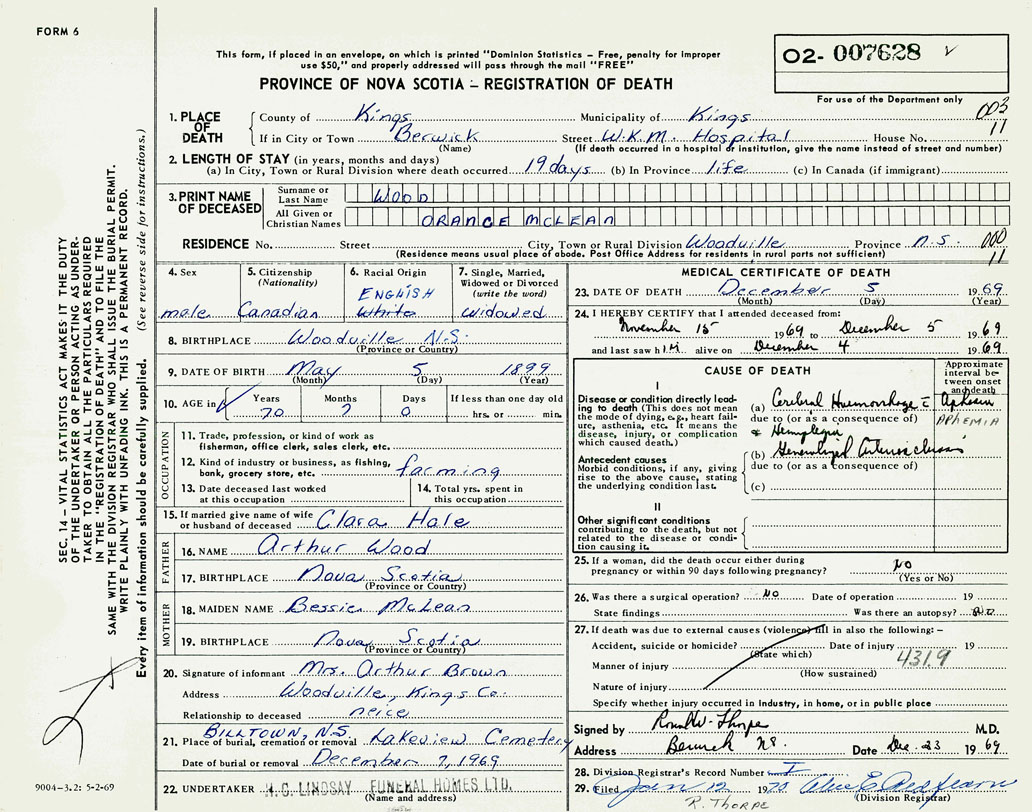 FORM 6
This form, if placed in an envelope, on which is printed "Dominion Statistics – Free, penalty for improper
use $50," and properly addressed will pass through the mail "FREE"
O2- 007628
PROVINCE OF NOVA SCOTIA – REGISTRATION OF DEATH
For use of the Department only
1. PLACE OF DEATH
County of Kings Municipality of Kings 003
If in City or Town Berwick Street W.K.M. Hospital House No. 11
(Name) (If death occurred in a hospital or institution, give the name instead of street and number)
2. LENGTH OF STAY (in years, months and days)
(a) In City, Town or Rural Division where death occurred 19 days (b) In Province life (c) In Canada (if immigrant)
3. PRINT NAME OF DECEASED
Surname or Last Name WOOD
All Given or Christian Names ORANGE MCLEAN
RESIDENCE No. Street City, Town or Rural Division Woodville Province N.S. 000
(Residence means usual place of abode. Post Office Address for residents in rural parts not sufficient) 11
4. Sex
male
5. Citizenship
(Nationality)
Canadian
6. Racial Origin
ENGLISH
White
7. Single, Married,
Widowed or Divorced
(write the word)
Widowed
8. BIRTHPLACE Woodville N.S.
(Province or Country)
9. DATE OF BIRTH May 5 1899
(Month) (Day) (Year)
10. AGE in Years Months Days If less than one day old
70 7 0 hrs. or min.
OCCUPATION
11. Trade, profession, or kind of work as
fisherman, office clerk, sales clerk, etc.
12. Kind of industry or business, as fishing,
bank, grocery store, etc. farming
13. Date deceased last worked
at this occupation
14. Total yrs. spent in
this occupation
15. If married give name of wife
or husband of deceased Clara Hale
FATHER
16. NAME Arthur Wood
17. BIRTHPLACE Nova Scotia
(Province or Country)
MOTHER
18. MAIDEN NAME Bessie McLean
19. BIRTHPLACE Nova Scotia
(Province or Country)
20. Signature of informant Mrs. Arthur Brown
Address Woodville, Kings Co.
Relationship to deceased neice
BILLTOWN, N.S.
21. Place of burial, cremation or removal Lakeview Cemetery
Date of burial or removal December 7, 1969
22. UNDERTAKER H. C. LINDSAY FUNERAL HOMES LTD.
(Name and address)
MEDICAL CERTIFICATE OF DEATH
23. DATE OF DEATH December 5 1969
(Month) (Day) (Year)
24. I HEREBY CERTIFY that I attended deceased from:
November 15 1969 to December 5 1969
and last saw him alive on December 4 1969
CAUSE OF DEATH
Approximate
interval be-
tween onset
and death
I
Disease or condition directly lead-
ing to death (This does not mean
the mode of dying, e.g., heart fail-
ure, asthenia, etc. It means the
disease, injury, or complication
which caused death.)
(a) Cerebral Haemorrhage c̄ Aphesia
due to (or as a consequence of) APHEMIA
& Hemiplegia
Antecedent causes
Morbid conditions, if any, giving
rise to the above cause, stating
the underlying condition last.
(b) Generalized Arteriosclerosis
due to (or as a consequence of)
(c)
II
Other significant conditions
contributing to the death, but not
related to the disease or condi-
tion causing it.
25. If a woman, did the death occur either during
pregnancy or within 90 days following pregnancy? NO
(Yes or No)
26. Was there a surgical operation? NO Date of operation 19
State findings Was there an autopsy? NO
27. If death was due to external causes (violence) fill in also the following: –
Accident, suicide or homicide? Date of injury 19
(State which) 431.9
Manner of injury
(How sustained)
Nature of injury
Specify whether injury occurred in industry, in home, or in public place
Signed by Ronald W. Thorpe M.D.
Address Berwick NS. Date Dec. 23 1969
28. Division Registrar's Record Number
29. Filed Jan 12 1970 Alice E Redfearn
(Division Registrar)
R. THORPE
SEC. 14 – VITAL STATISTICS ACT MAKES IT THE DUTY
OF THE UNDERTAKER OR PERSON ACTING AS UNDER-
TAKER TO OBTAIN ALL THE PARTICULARS REQUIRED
IN THE "REGISTRATION OF DEATH" AND TO FILE THE
SAME WITH THE DIVISION REGISTRAR WHO SHALL ISSUE THE BURIAL PERMIT.
WRITE PLAINLY WITH UNFADING INK. THIS IS A PERMANENT RECORD.
Every item of information should be carefully supplied. (See reverse side for instructions.)
9004-3.2: 5-2-69